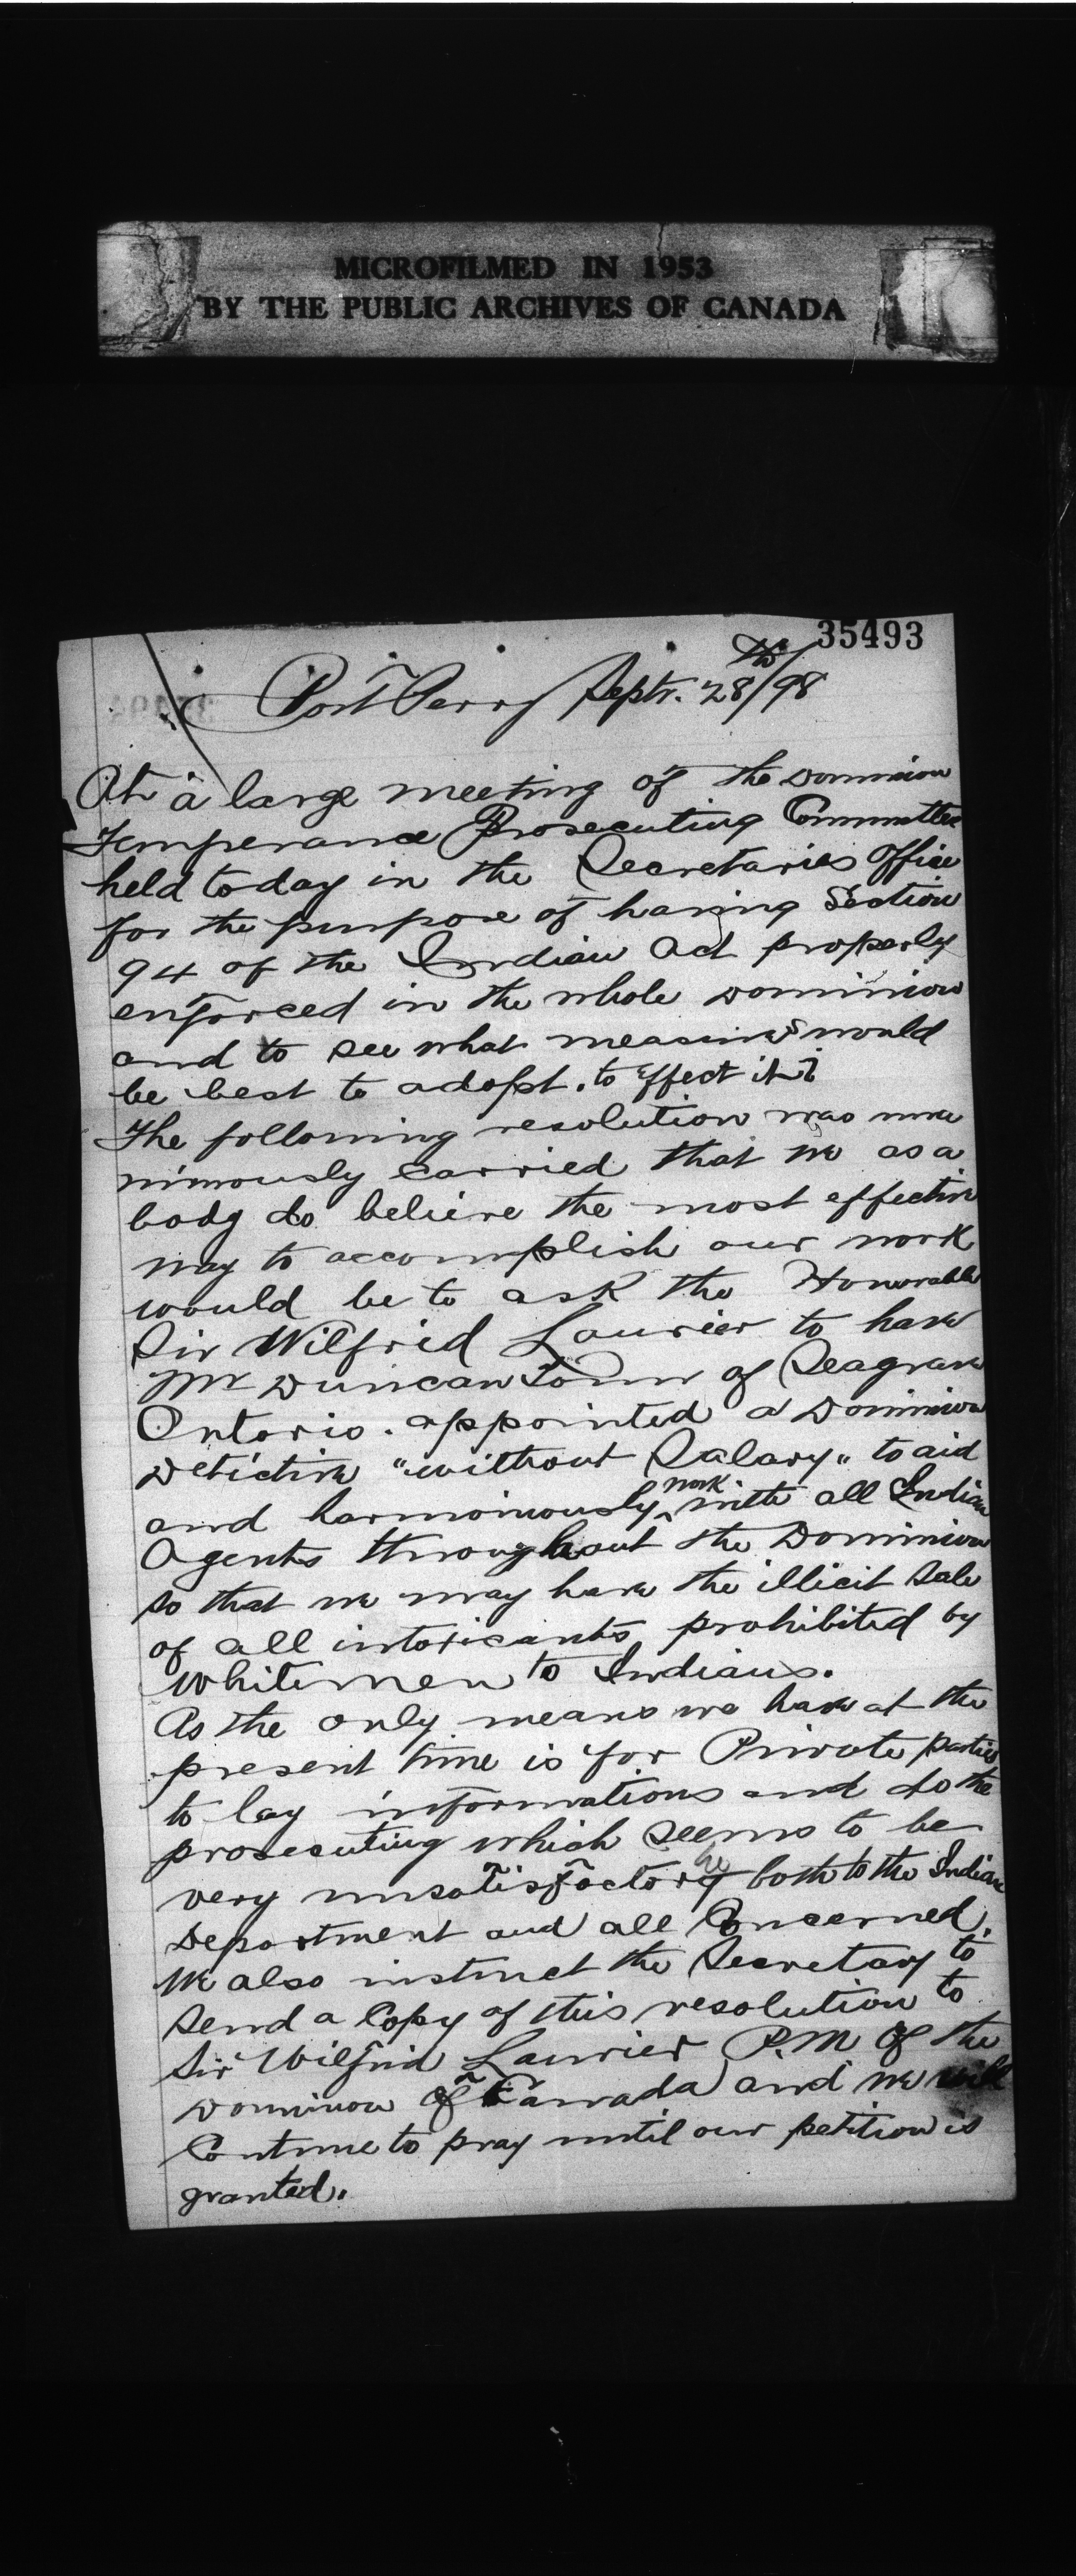 MICROFILMED IN 1953
BY THE PUBLIC ARCHIVES OF CANADA
35493
Port Perry Septr. 28th/98
At a large meeting of the Dominion
Temperance Prosecuting Committee
held today in the Secretaries Office
for the purpose of having Section
94 of the Indian Act properly
enforced in the whole Dominion
and to see what measures would
be best to adopt. to Effect it?
The following resolution was una
nimously carried that we as a
body do believe the most effective
way to accomplish our work
would be to ask the Honorable
Sir Wilfrid Laurier to have
Mr Duncan of Seagrave
Ontario. appointed a Dominion
Detective "without Salary" to aid
and harmoniously work with all Indian
Agents throughout the Dominion
so that we may have the illicit Sale
of all intoxicants prohibited by
whitemen to Indians.
As the only means we have at the
present time is for Private parties
to lay informations and do the
prosecuting which seems to be
very unsatisfactory both to the Indian
Department and all Concerned.
We also instruct the Secretary to
Send a Copy of this resolution to
Sir Wilfrid Laurier P.M of the
Dominion of Canada and we will
Continue to pray until our petition is
granted.